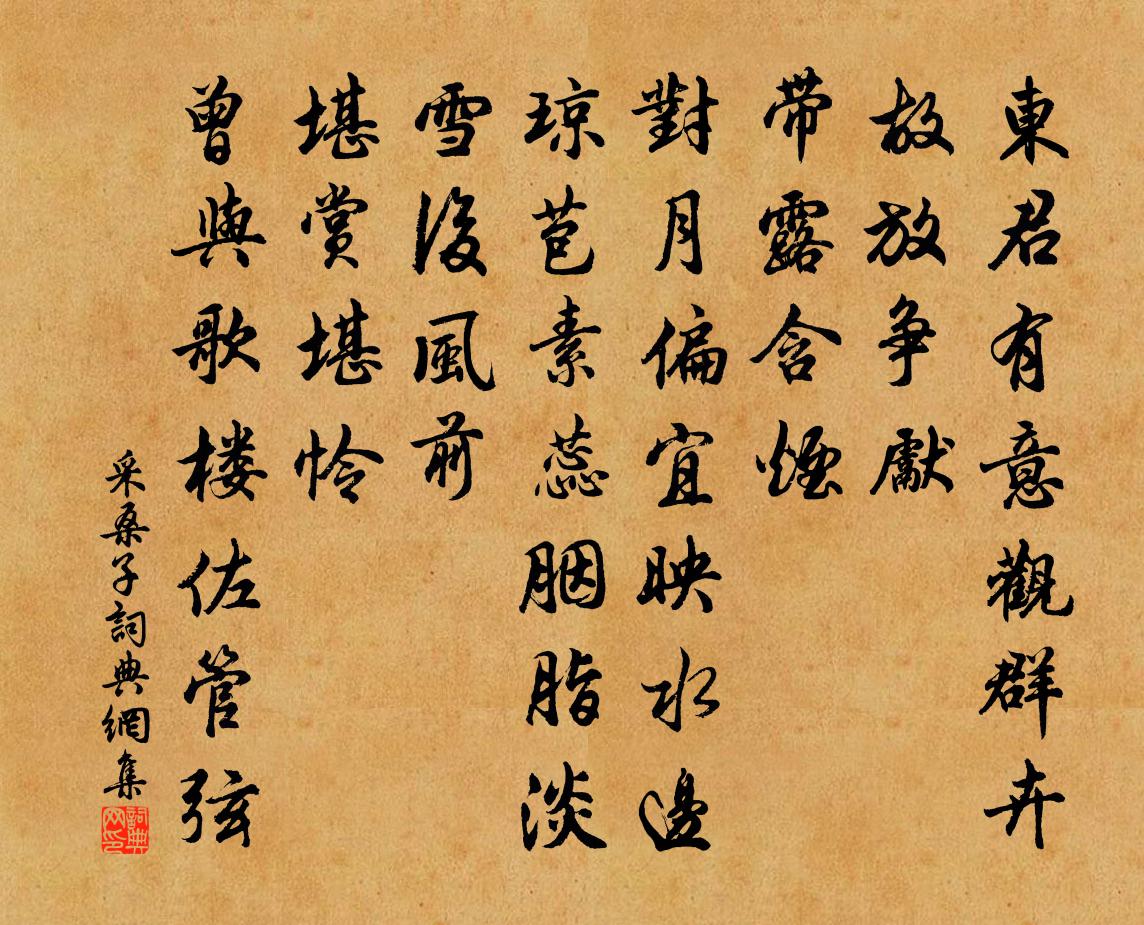 東君有意觀群卉
故放争獻
帶露含煙
對月偏宜映水邊
琼苞素蕊胭脂淡
雪後風前
堪賞堪怜
曾與歌楼佐管弦
采桑子詞典網集
詞典网印